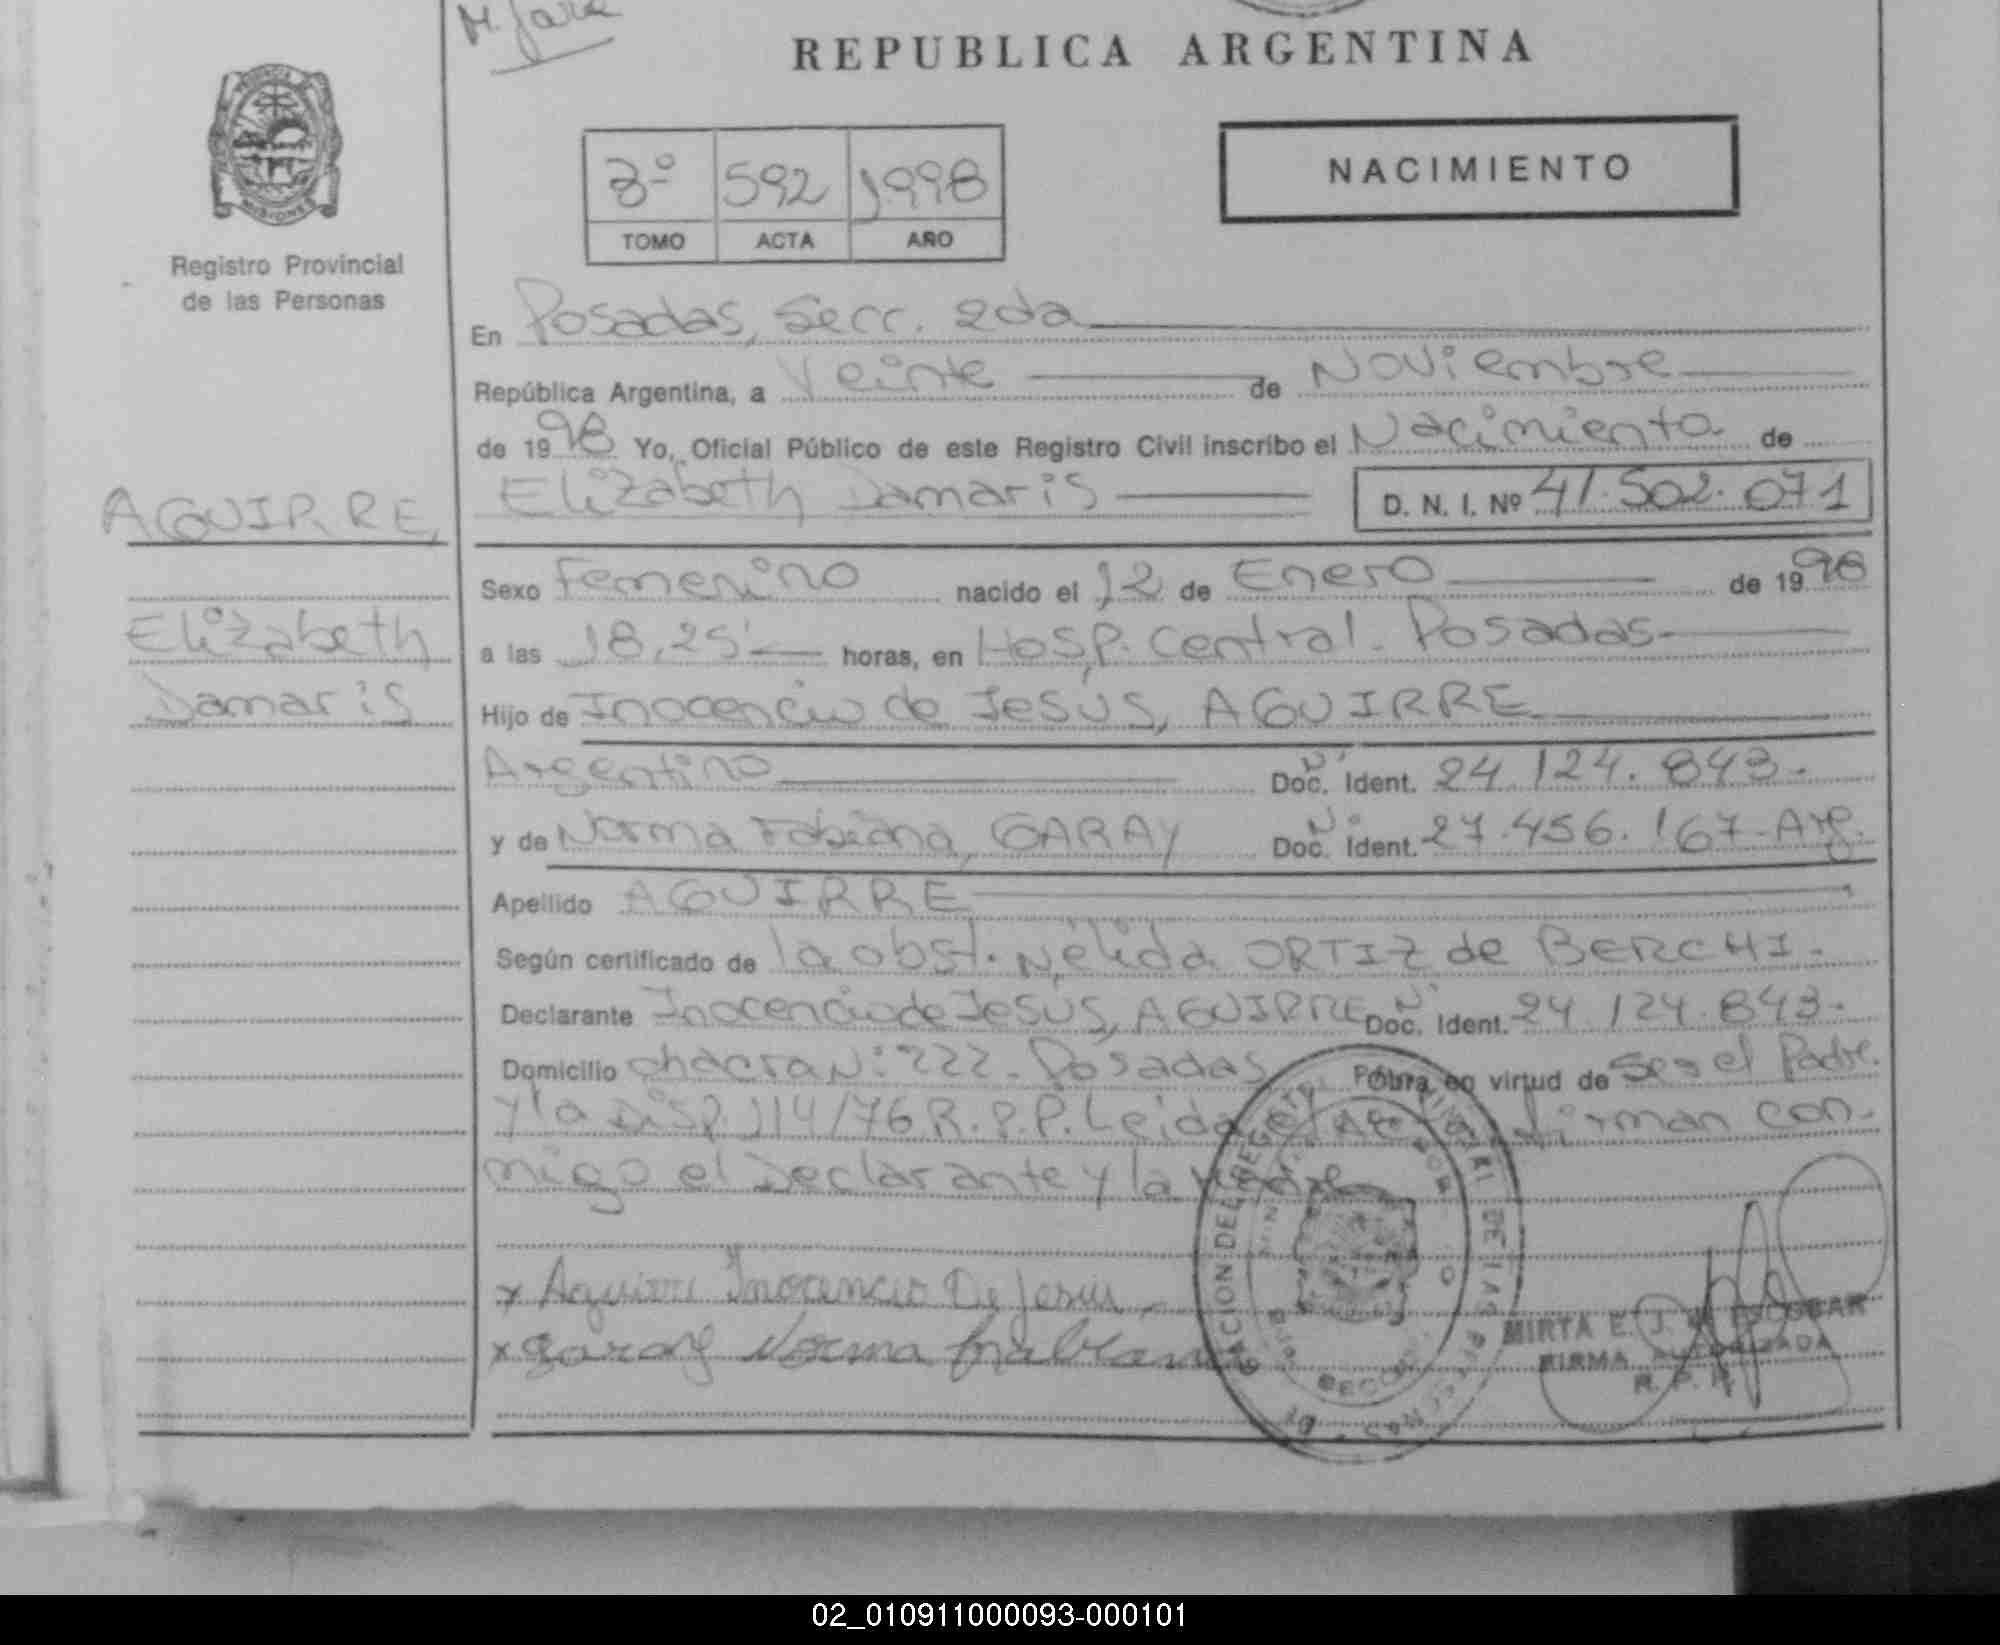 REPUBLICA ARGENTINA
NACIMIENTO
3º 592 1998
TOMO ACTA AÑO
PROVINCIA
MISIONES
Registro Provincial
de las Personas
En Posadas, Secc. 2da
República Argentina, a Veinte de Noviembre
de 1998 Yo, Oficial Público de este Registro Civil inscribo el Nacimiento de
Elizabeth Damaris D. N. I. Nº 41.502.071
AGUIRRE,
Elizabeth
Damaris
Sexo Femenino nacido el 12 de Enero de 1998
a las 18,25' horas, en Hosp. Central. Posadas
Hijo de Inocencio de Jesús, AGUIRRE
Argentino Nº Doc. Ident. 24.124.843.
y de Norma Fabiana, GARAY Nº Doc. Ident. 27.456.167-Arg.
Apellido AGUIRRE
Según certificado de la obst. Nélida ORTIZ de BERCHI.
Declarante Inocencio de Jesús, AGUIRRE Nº Doc. Ident. 24.124.843.
Domicilio chacra Nº 222. Posadas Obra en virtud de Ser el Padre
y la Disp. 114/76 R.P.P. Leida el Acta firman con-
migo el Declarante y la
x Aguirre Inocencio De Jesus
x Garay Norma Fabiana
MIRTA E. J. ESCOBAR
FIRMA AUTORIZADA
R. P. P.
02_010911000093-000101